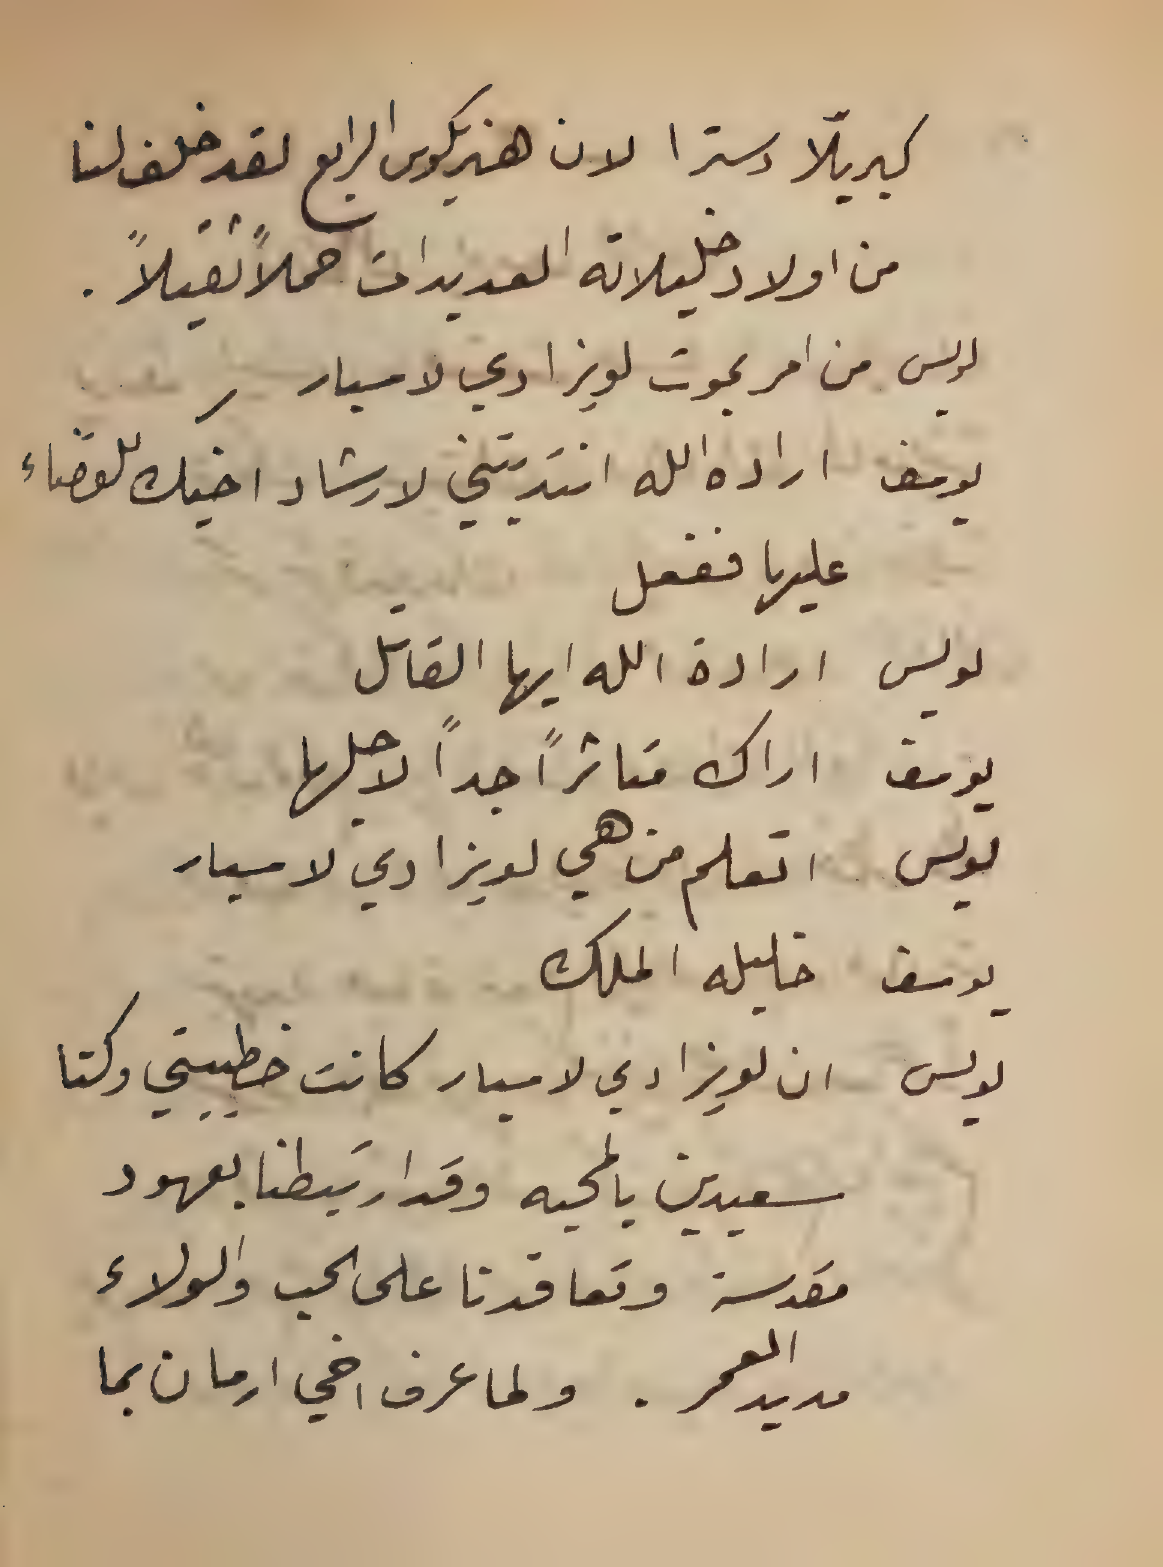 كبريلّا دسترا لان هنريكوس الرابع لقد خلف لنا
من اولاد خليلاته العديدات حملاً ثقيلاً .
لويس من امر بموت لويزا دي لاميار
يوسف ارادة الله انتدبتني لارشاد اخيك للقضاء
عليها ففعل
لويس ارادة الله ايها القاتل
يوسف اراك متاثراً جداً لاجلها
لويس اتعلم من هي لويزا دي لاميار
يوسف خليله الملك
لويس ان لويزا دي لاميار كانت خطيبتي وكنا
سعيدين بالمحبه وقد ارتبطنا بعهود
مقدسة وتعاقدنا على الحب والولاء
مديد العمر . ولما عرف اخي ارمان بما